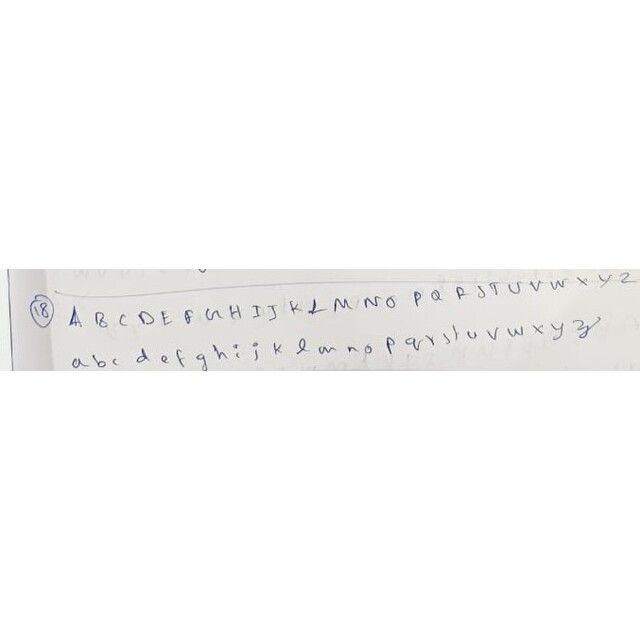 18 A B C D E F G H I J K L M N O P Q R S T U V W X Y Z
a b c d e f g h i j k l m n o p q r s t u v w x y z